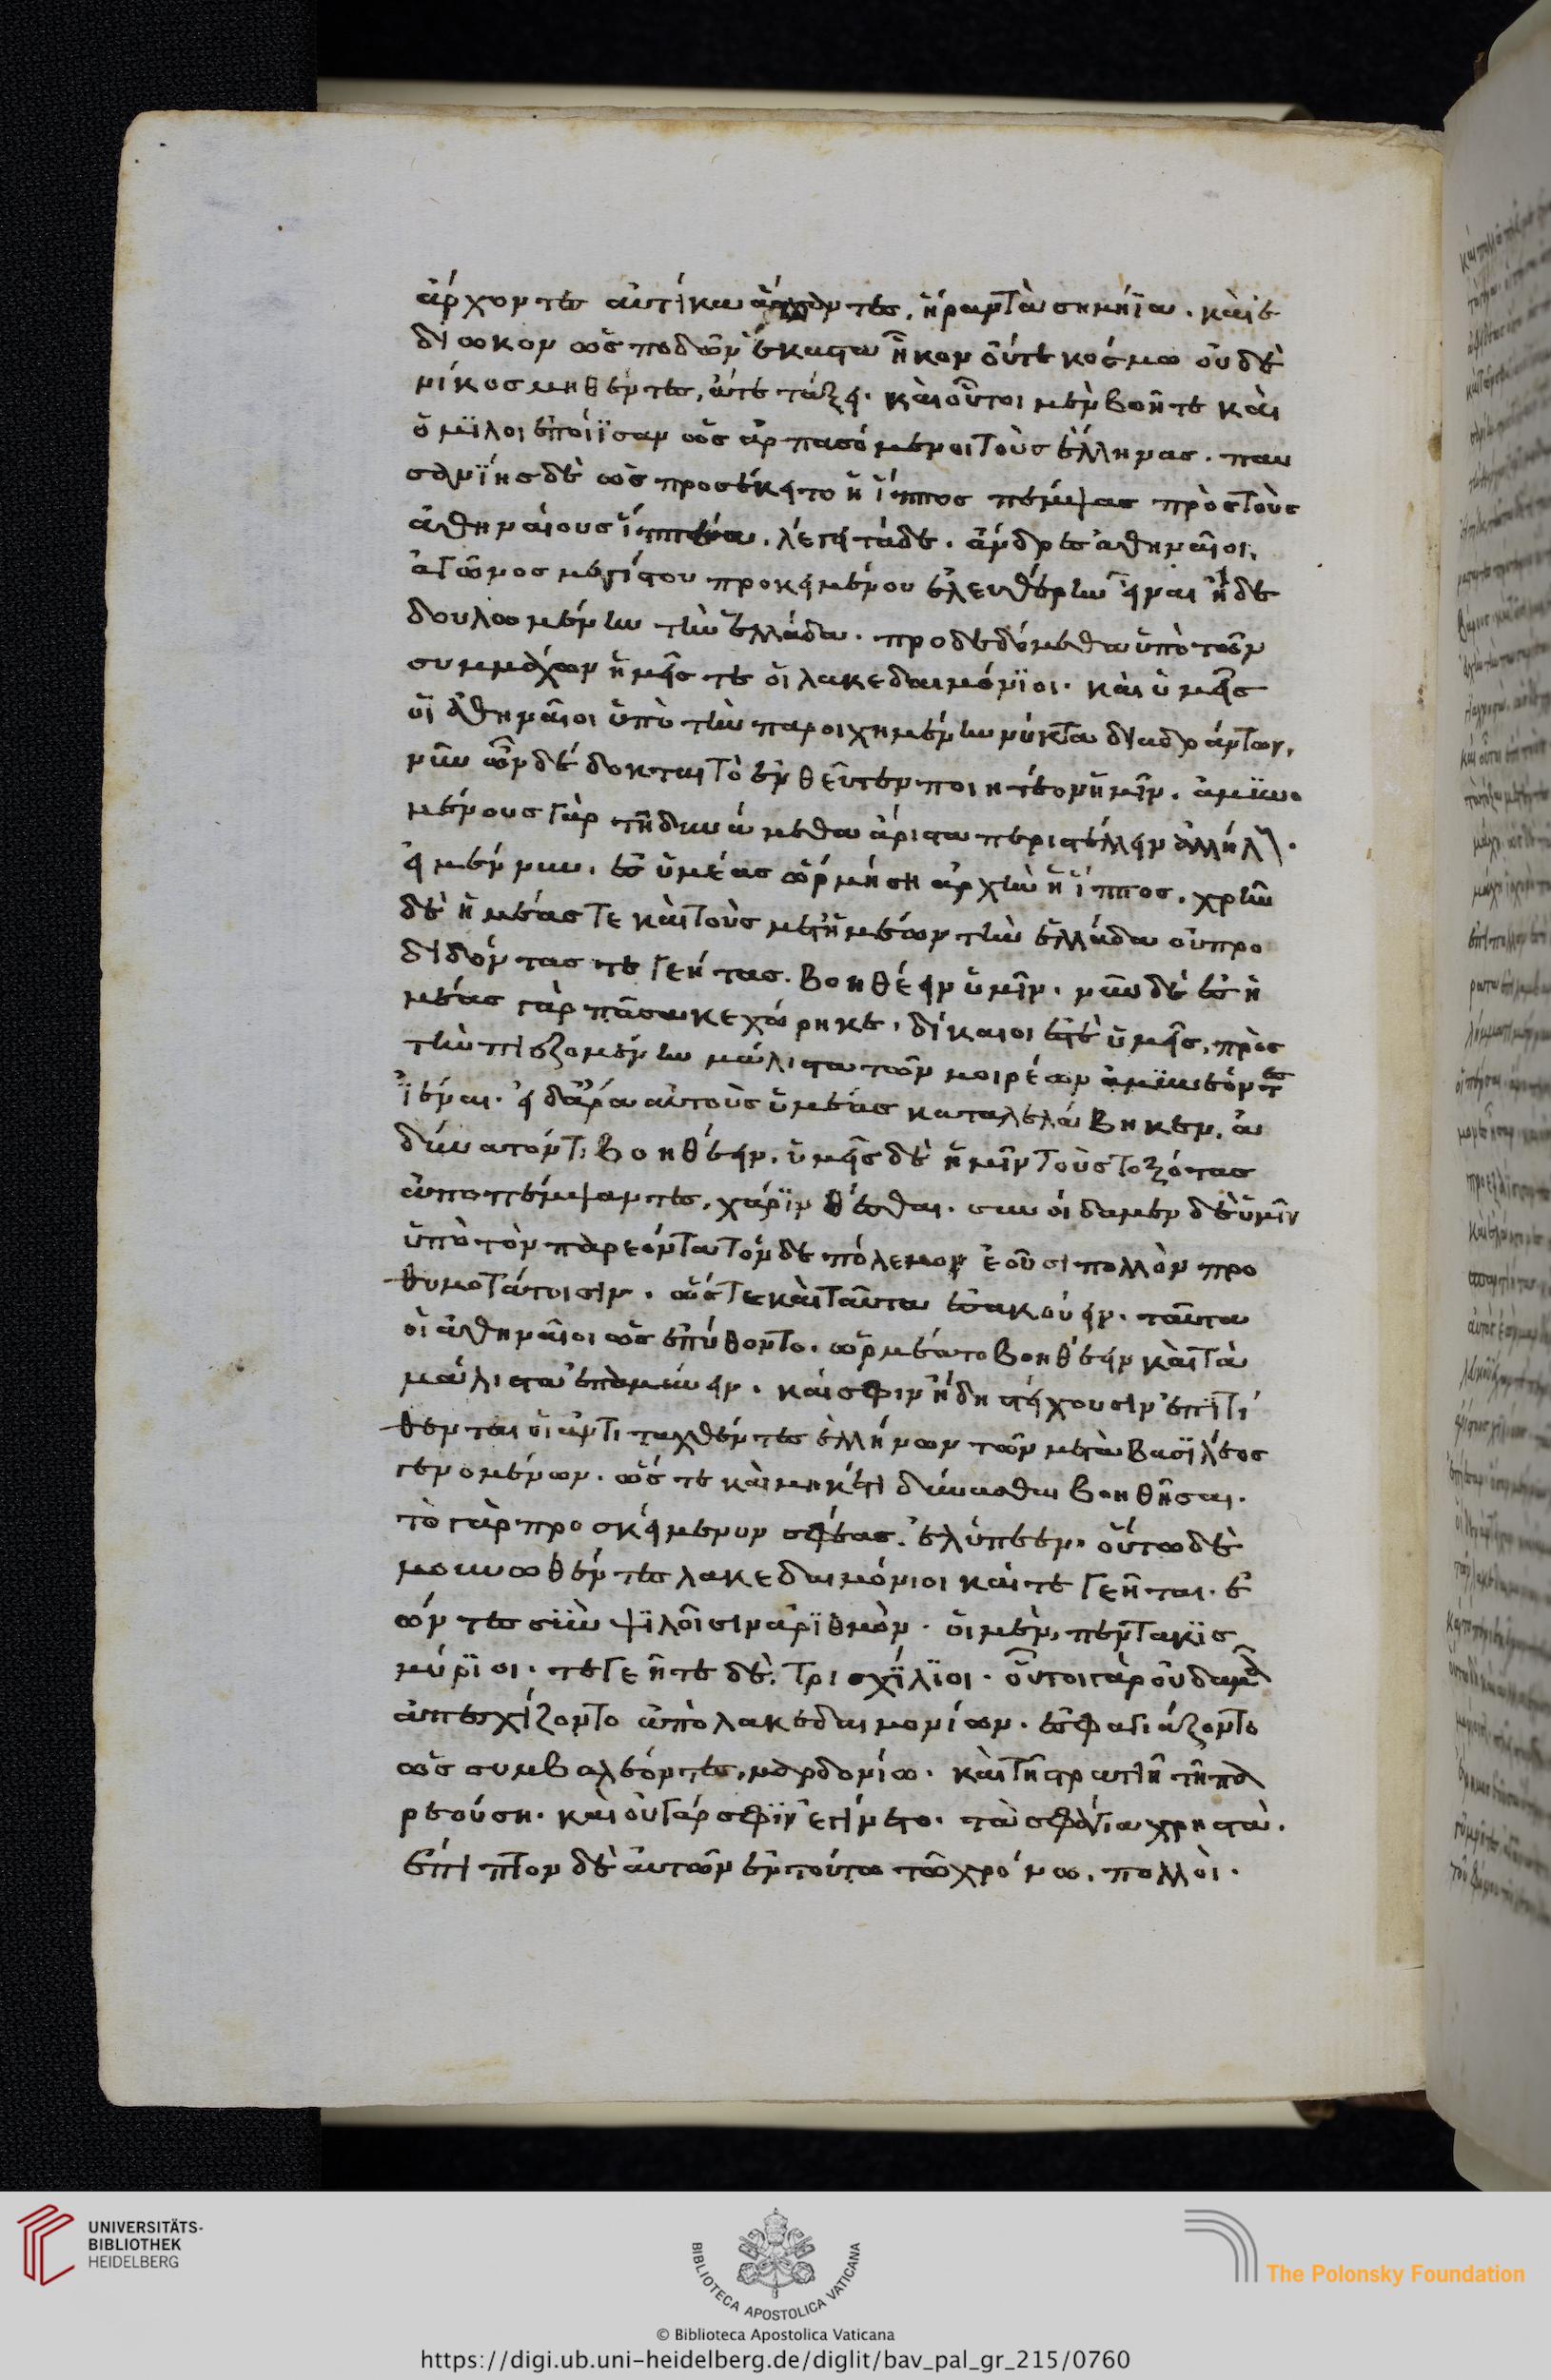 ἄρχοντες αὐτίκα ἅπαντες, ἤραν τὰ σημήϊα. καὶ ἐ
δίωκον ὡς ποδῶν ἕκαστοι ἦκον οὔτε κόσμω οὐδε
νὶ κοσμηθέντες, οὔτε τάξει. καὶ οὗτοι μὲν βοῆ τε καὶ
ὁμίλοι ἐπόϊσαν ὡς ἀρπασόμενοι τοὺς ἕλληνας. παυ
σανίης δὲ ὡς προσέκειτο ἡ ἵππος πέμψας πρὸς τοὺς
ἀθηναίους ἱππέα. λέγει τάδε. ἄνδρες ἀθηναῖοι,
ἀγῶνος μεγίστου προκειμένου ἐλευθέρην εἶναι ἢ δε
δουλωμένην τὴν ἑλλάδα. προδεδόμεθα ὑπὸ τῶν
συμμάχων ἡμεῖς τε οἱ λακεδαιμόνιοι. καὶ ὑμεῖς
οἱ ἀθηναῖοι ὑπὸ τὴν παροιχημένην νύκτα διαδράντων.
νῦν ὦν δέδοκται τὸ ἐνθεῦτεν ποιητέον ἡμῖν. ἀμυνο
μένους γὰρ τῆ δυνάμεθα ἄριστα περιστέλλειν ἀλλήλ.
εἰ μέν νυν. ἐς ὑμέας ὥρμησε ἀρχὴν ἡ ἵππος. χρῆν
δὲ ἡμέας τε καὶ τοὺς μετ' ἡμέων τὴν ἑλλάδα οὐ προ
διδόντας τεγεήτας. βοηθέειν ὑμῖν. νῦν δὲ ἐς ἡ
μέας γὰρ πᾶσα κεχώρηκε, δίκαιοι ἐστὲ ὑμεῖς, πρὸς
τὴν πιεζομένην μάλιστα τῶν μοιρέων ἀμυνεόντες
ἰέναι. εἰ δ' ἄρα αὐτοὺς ὑμέας καταλελάβηκεν, ἀ
δύνατόν τι βοηθέειν. ὑμεῖς δὲ ἡμῖν τοὺς τοξότας
ἀποπέμψαντες, χάριν θέσθαι. συνοίδαμεν δὲ ὑμῖν
ὑπὸ τὸν παρεόντα τόνδε πόλεμον ἐοῦσι πολλὸν προ
θυμοτάτοισιν. ὥστε καὶ ταῦτα ἐσακούειν. ταῦτα
οἱ ἀθηναῖοι ὡς ἐπύθοντο. ὡρμέατο βοηθέειν καὶ τὰ
μάλιστα ἐπαμύνειν. καί σφιν ἤδη στείχουσιν ἐπιτί
θενται οἱ ἀντιταχθέντες ἑλλήνων τῶν μετὰ βασιλέος
γενομένων. ὥστε καὶ μηκέτι δύνασθαι βοηθῆσαι.
τὸ γὰρ προσκείμενον σφέας. ἐλύπεεν. οὕτω δὲ
μουνωθέντες λακεδαιμόνιοι καὶ τεγεῆται. ἐ
όντες σὺν ψιλοῖσιν ἀριθμὸν. οἱ μὲν, πεντακισ
μύριοι. τεγεῆτε δὲ, τρισχίλιοι. οὗτοι γὰρ οὐδαμὰ
ἀπεσχίζοντο ἀπὸ λακεδαιμονίων. ἐσφαγιάζοντο
ὡς συμβαλεόντες, μαρδονίω. καὶ τῆ στρατιῆ τῆ πα
ρεούση. καὶ οὐ γάρ σφιν ἐγίνετο. τὰ σφάγια χρηστὰ.
ἔπιπτον δὲ αὐτῶν ἐν τούτω τῶ χρόνω. πολλοὶ.
UNIVERSITÄTS-
BIBLIOTHEK
HEIDELBERG
BIBLIOTECA APOSTOLICA VATICANA
The Polonsky Foundation
© Biblioteca Apostolica Vaticana
https://digi.ub.uni-heidelberg.de/diglit/bav_pal_gr_215/0760